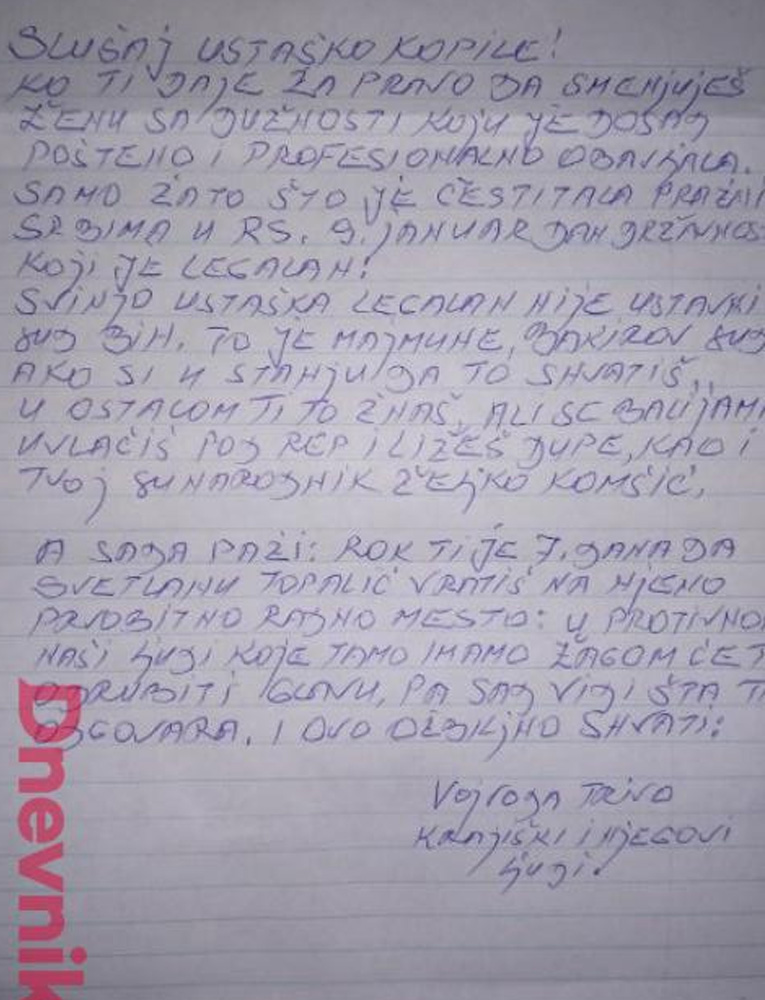 SLUŠAJ USTAŠKO KOPILE!
KO TI DAJE ZA PRAVO DA SMENJUJEŠ
ŽENU SA DUŽNOSTI KOJU JE DOSAD
POŠTENO I PROFESIONALNO OBAVLJALA.
SAMO ZATO ŠTO JE ČESTITALA PRAZNI
SRBIMA U RS. 9. JANUAR DAN DRŽAVNOS
KOJI JE LEGALAN!
SVINJO USTAŠKA LEGALAN NIJE USTAVNI
SUD BIH. TO JE MAJMUNE, BAKIROV SUD
AKO SI U STANJU DA TO SHVATIŠ,,
U OSTALOM TI TO ZNAŠ, ALI SE BALIJAMA
UVLAČIŠ POD REP I LIŽEŠ DUPE, KAO I
TVOJ SUNARODNIK ŽELJKO KOMŠIĆ,
A SADA PAZI: ROK TI JE 7. DANA DA
SVETLANU TOPALIĆ VRATIŠ NA NJENO
PRVOBITNO RADNO MESTO: U PROTIVNOM
NAŠI LJUDI KOJE TAMO IMAMO ŽAGOM ĆE T
ODRUBITI GLAVU, PA SAD VIDI ŠTA TI
ODGOVARA. I OVO OZBILJNO SHVATI:
VOJVODA TRIVO
KRAJIŠKI I NJEGOVI
LJUDI.
Dnevnik